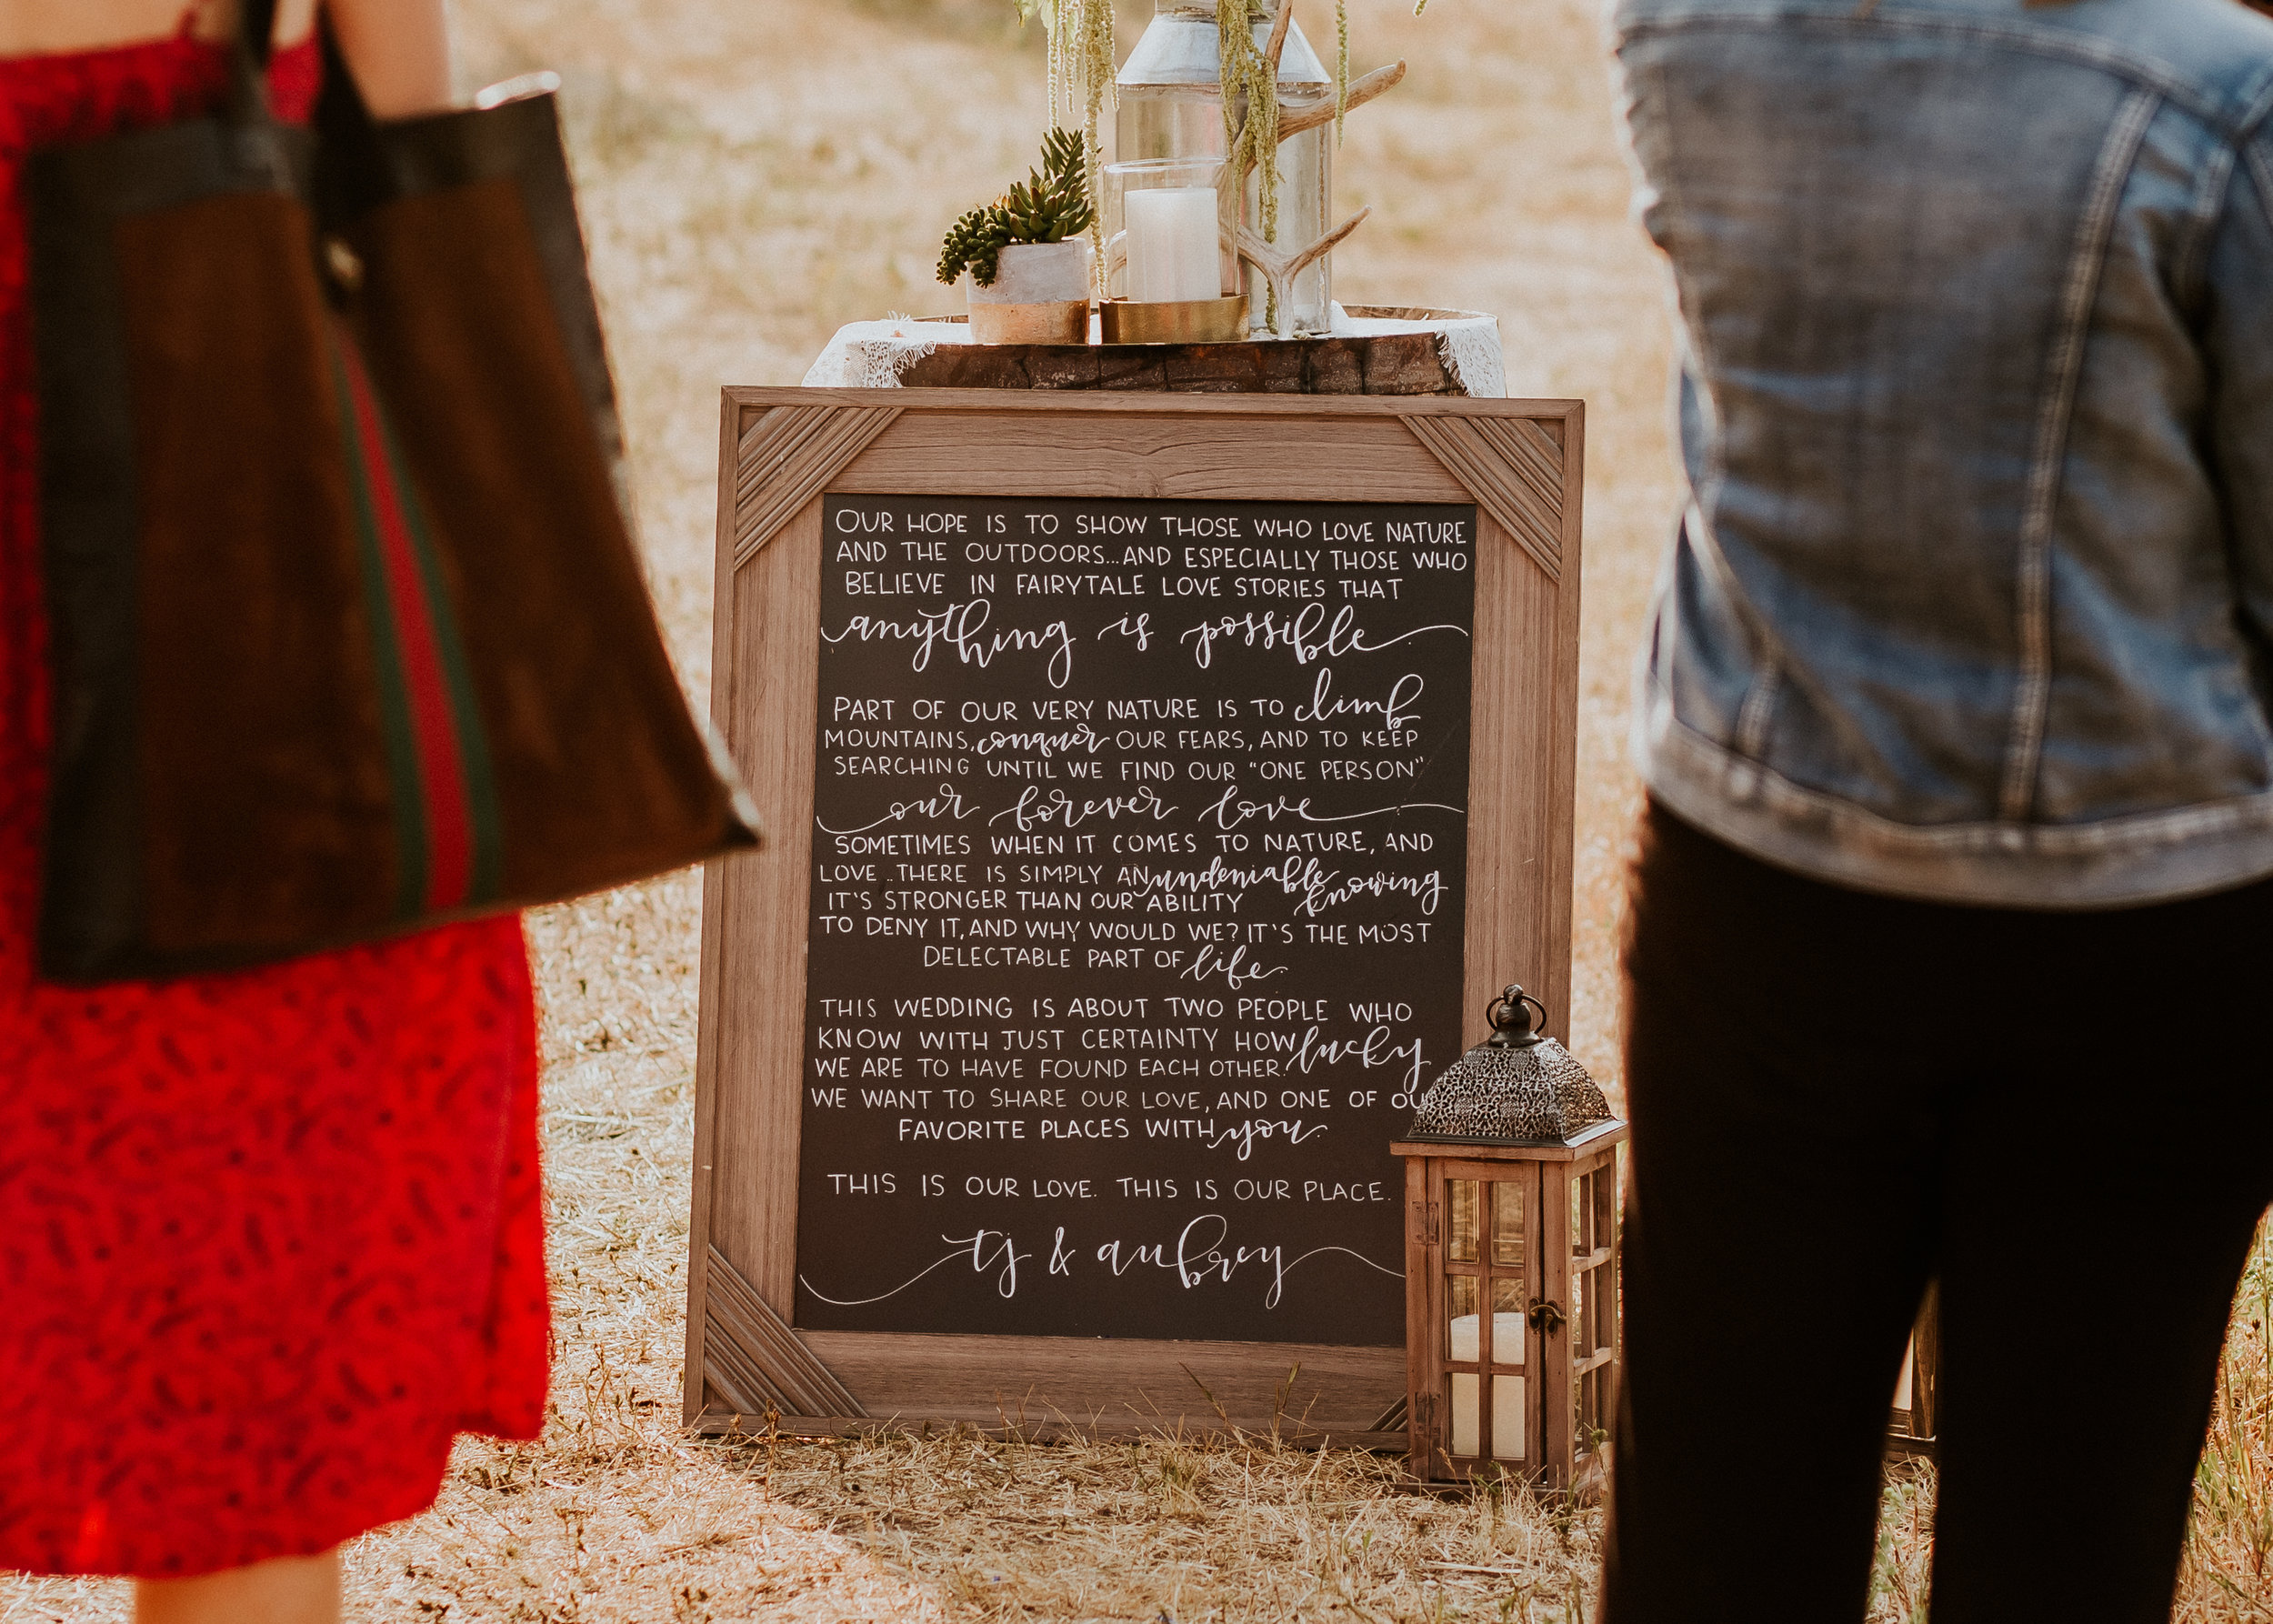 OUR HOPE IS TO SHOW THOSE WHO LOVE NATURE
AND THE OUTDOORS...AND ESPECIALLY THOSE WHO
BELIEVE IN FAIRYTALE LOVE STORIES THAT
anything is possible
PART OF OUR VERY NATURE IS TO climb
MOUNTAINS, conquer OUR FEARS, AND TO KEEP
SEARCHING UNTIL WE FIND OUR "ONE PERSON"
our forever love
SOMETIMES WHEN IT COMES TO NATURE, AND
LOVE...THERE IS SIMPLY AN undeniable knowing
IT'S STRONGER THAN OUR ABILITY
TO DENY IT, AND WHY WOULD WE? IT'S THE MOST
DELECTABLE PART OF life.
THIS WEDDING IS ABOUT TWO PEOPLE WHO
KNOW WITH JUST CERTAINTY HOW lucky
WE ARE TO HAVE FOUND EACH OTHER.
WE WANT TO SHARE OUR LOVE, AND ONE OF OU
FAVORITE PLACES WITH you.
THIS IS OUR LOVE. THIS IS OUR PLACE.
tj & aubrey